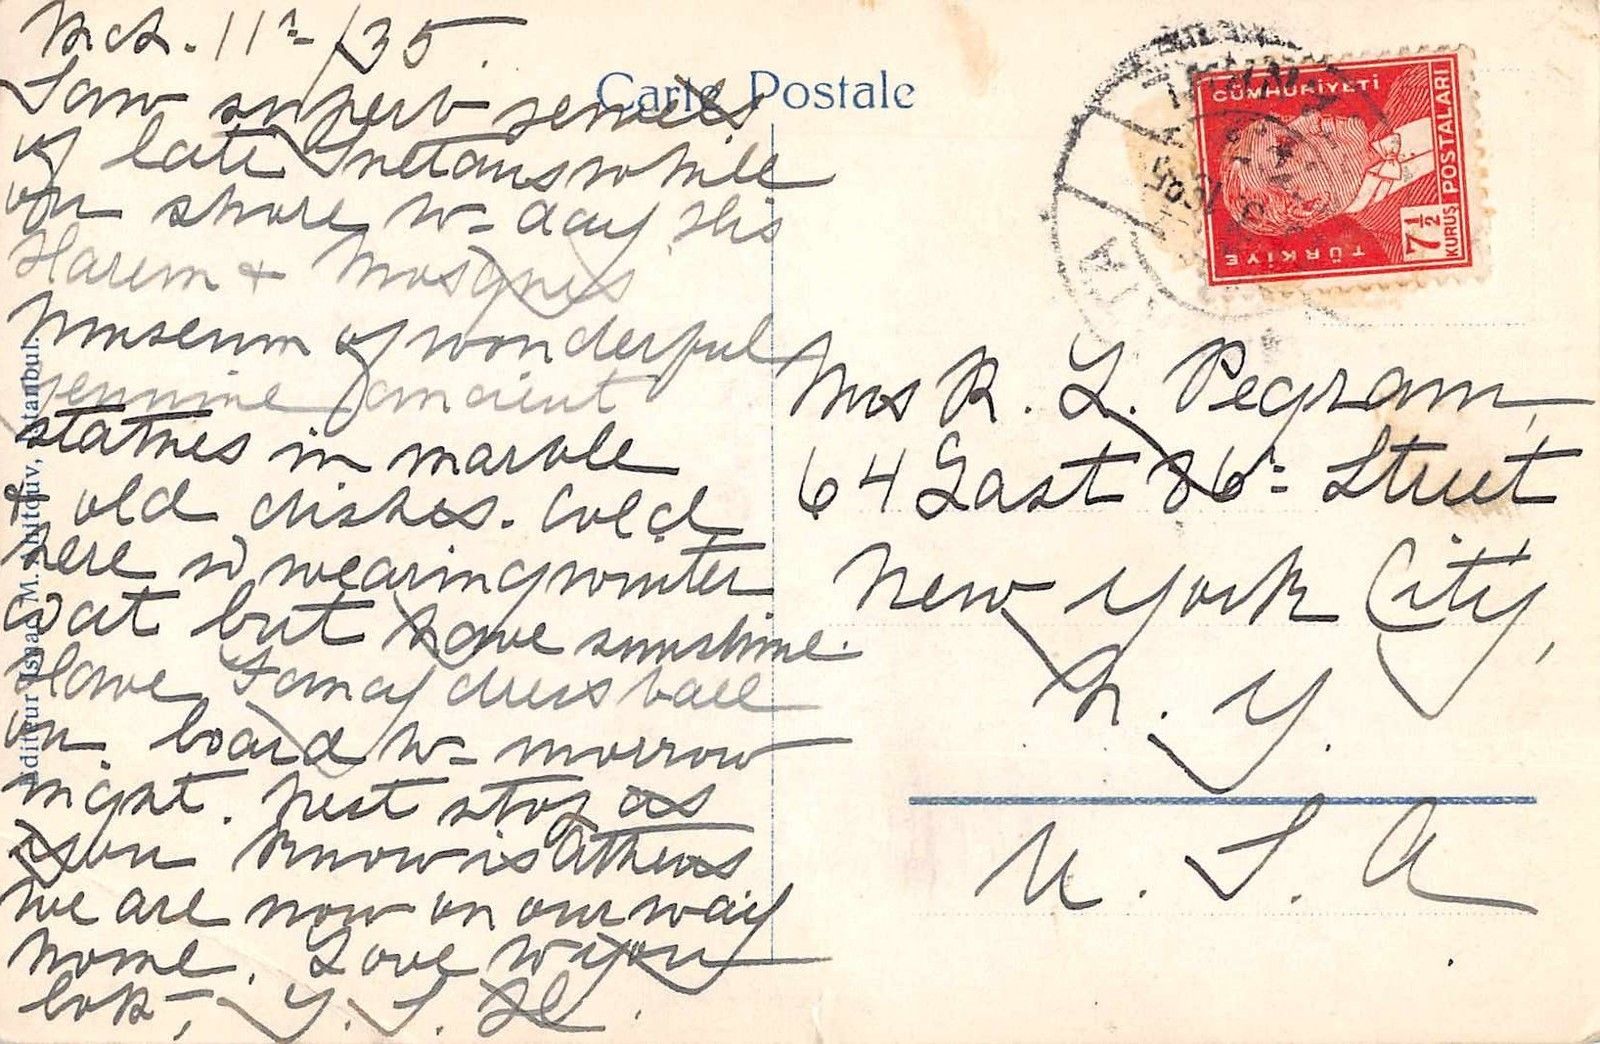 Mch. 11th /35.
Saw superb jewels
of late Sultans while
on shore to-day His
Harem & Mosques
Museum of wonderful
genuine ancient
statues in marble
& old dishes. Cold
here so wearing winter
coat but have sunshine.
Have Fancy dress ball
on board to-morrow
night. Next stop as
you know is Athens
we are now on our way
home. Love to you
both, Y. S. H.
Carte Postale
CÜMHURİYETİ
POSTALARI
TÜRKİYE
7½
KURUŞ
Mrs R. L. Pegram,
64 East 86th Street
New York City,
N. Y.
U. S. A.
Editeur Isaac M. Ahitouv, Istanbul.